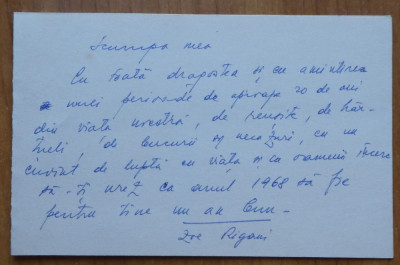 Scumpa mea
Cu toată dragostea și cu amintirea
unei perioade de aproape 20 de ani
din viața noastră, de reușite, de bă-
tăi, de bucurii și necazuri, cu un
cuvânt de luptă cu viața și cu oamenii
să-ți urez ca anul 1968 să fie
pentru tine un an bun -
Zoe Rigani